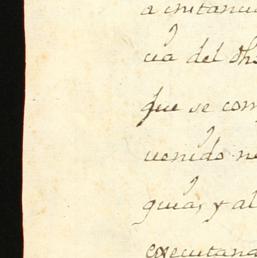 a instanci
cia del dho
que se com
uenido ne
guias, y al
executand